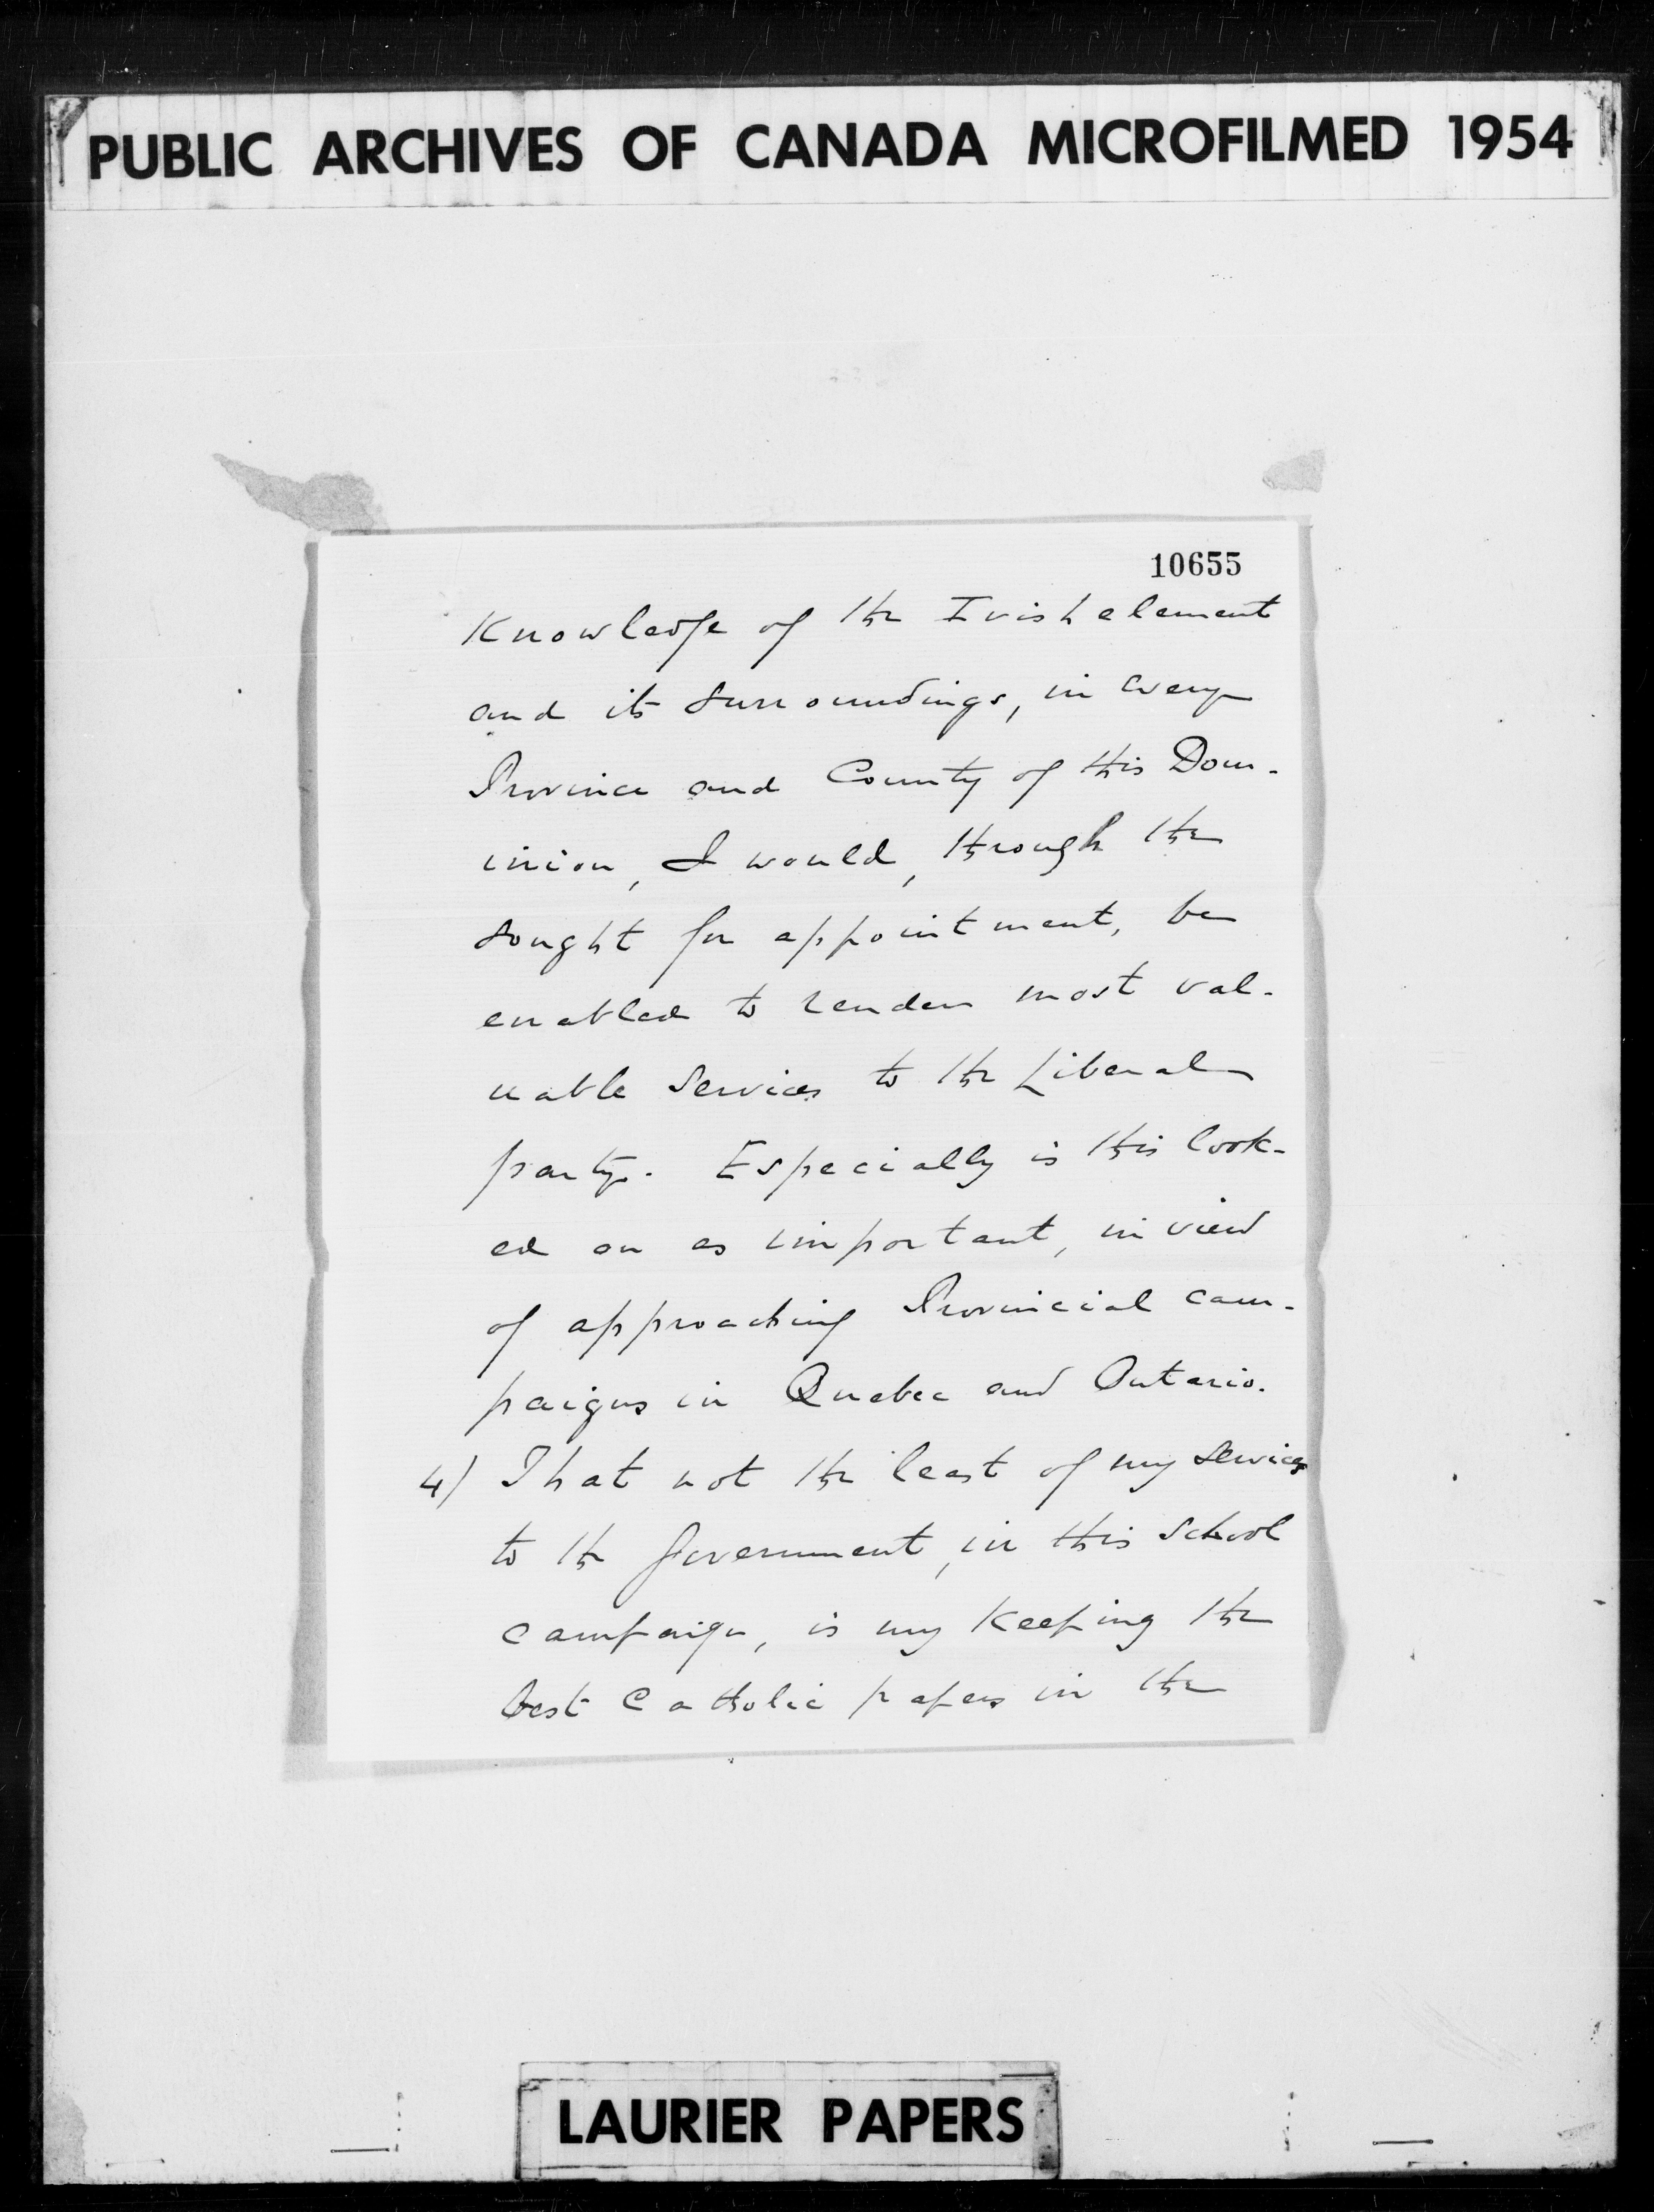 PUBLIC ARCHIVES OF CANADA MICROFILMED 1954
10655
Knowledge of the Irish element
and its surroundings, in every
Province and County of this Dom-
inion, I would, through the
sought for appointment, be
enabled to render most val-
uable services to the Liberal
party. Especially is this look-
ed on as important, in view
of approaching Provincial cam-
paigns in Quebec and Ontario.
4) That not the least of my services
to the Government, in this School
campaign, is my keeping the
best Catholic papers in the
LAURIER PAPERS